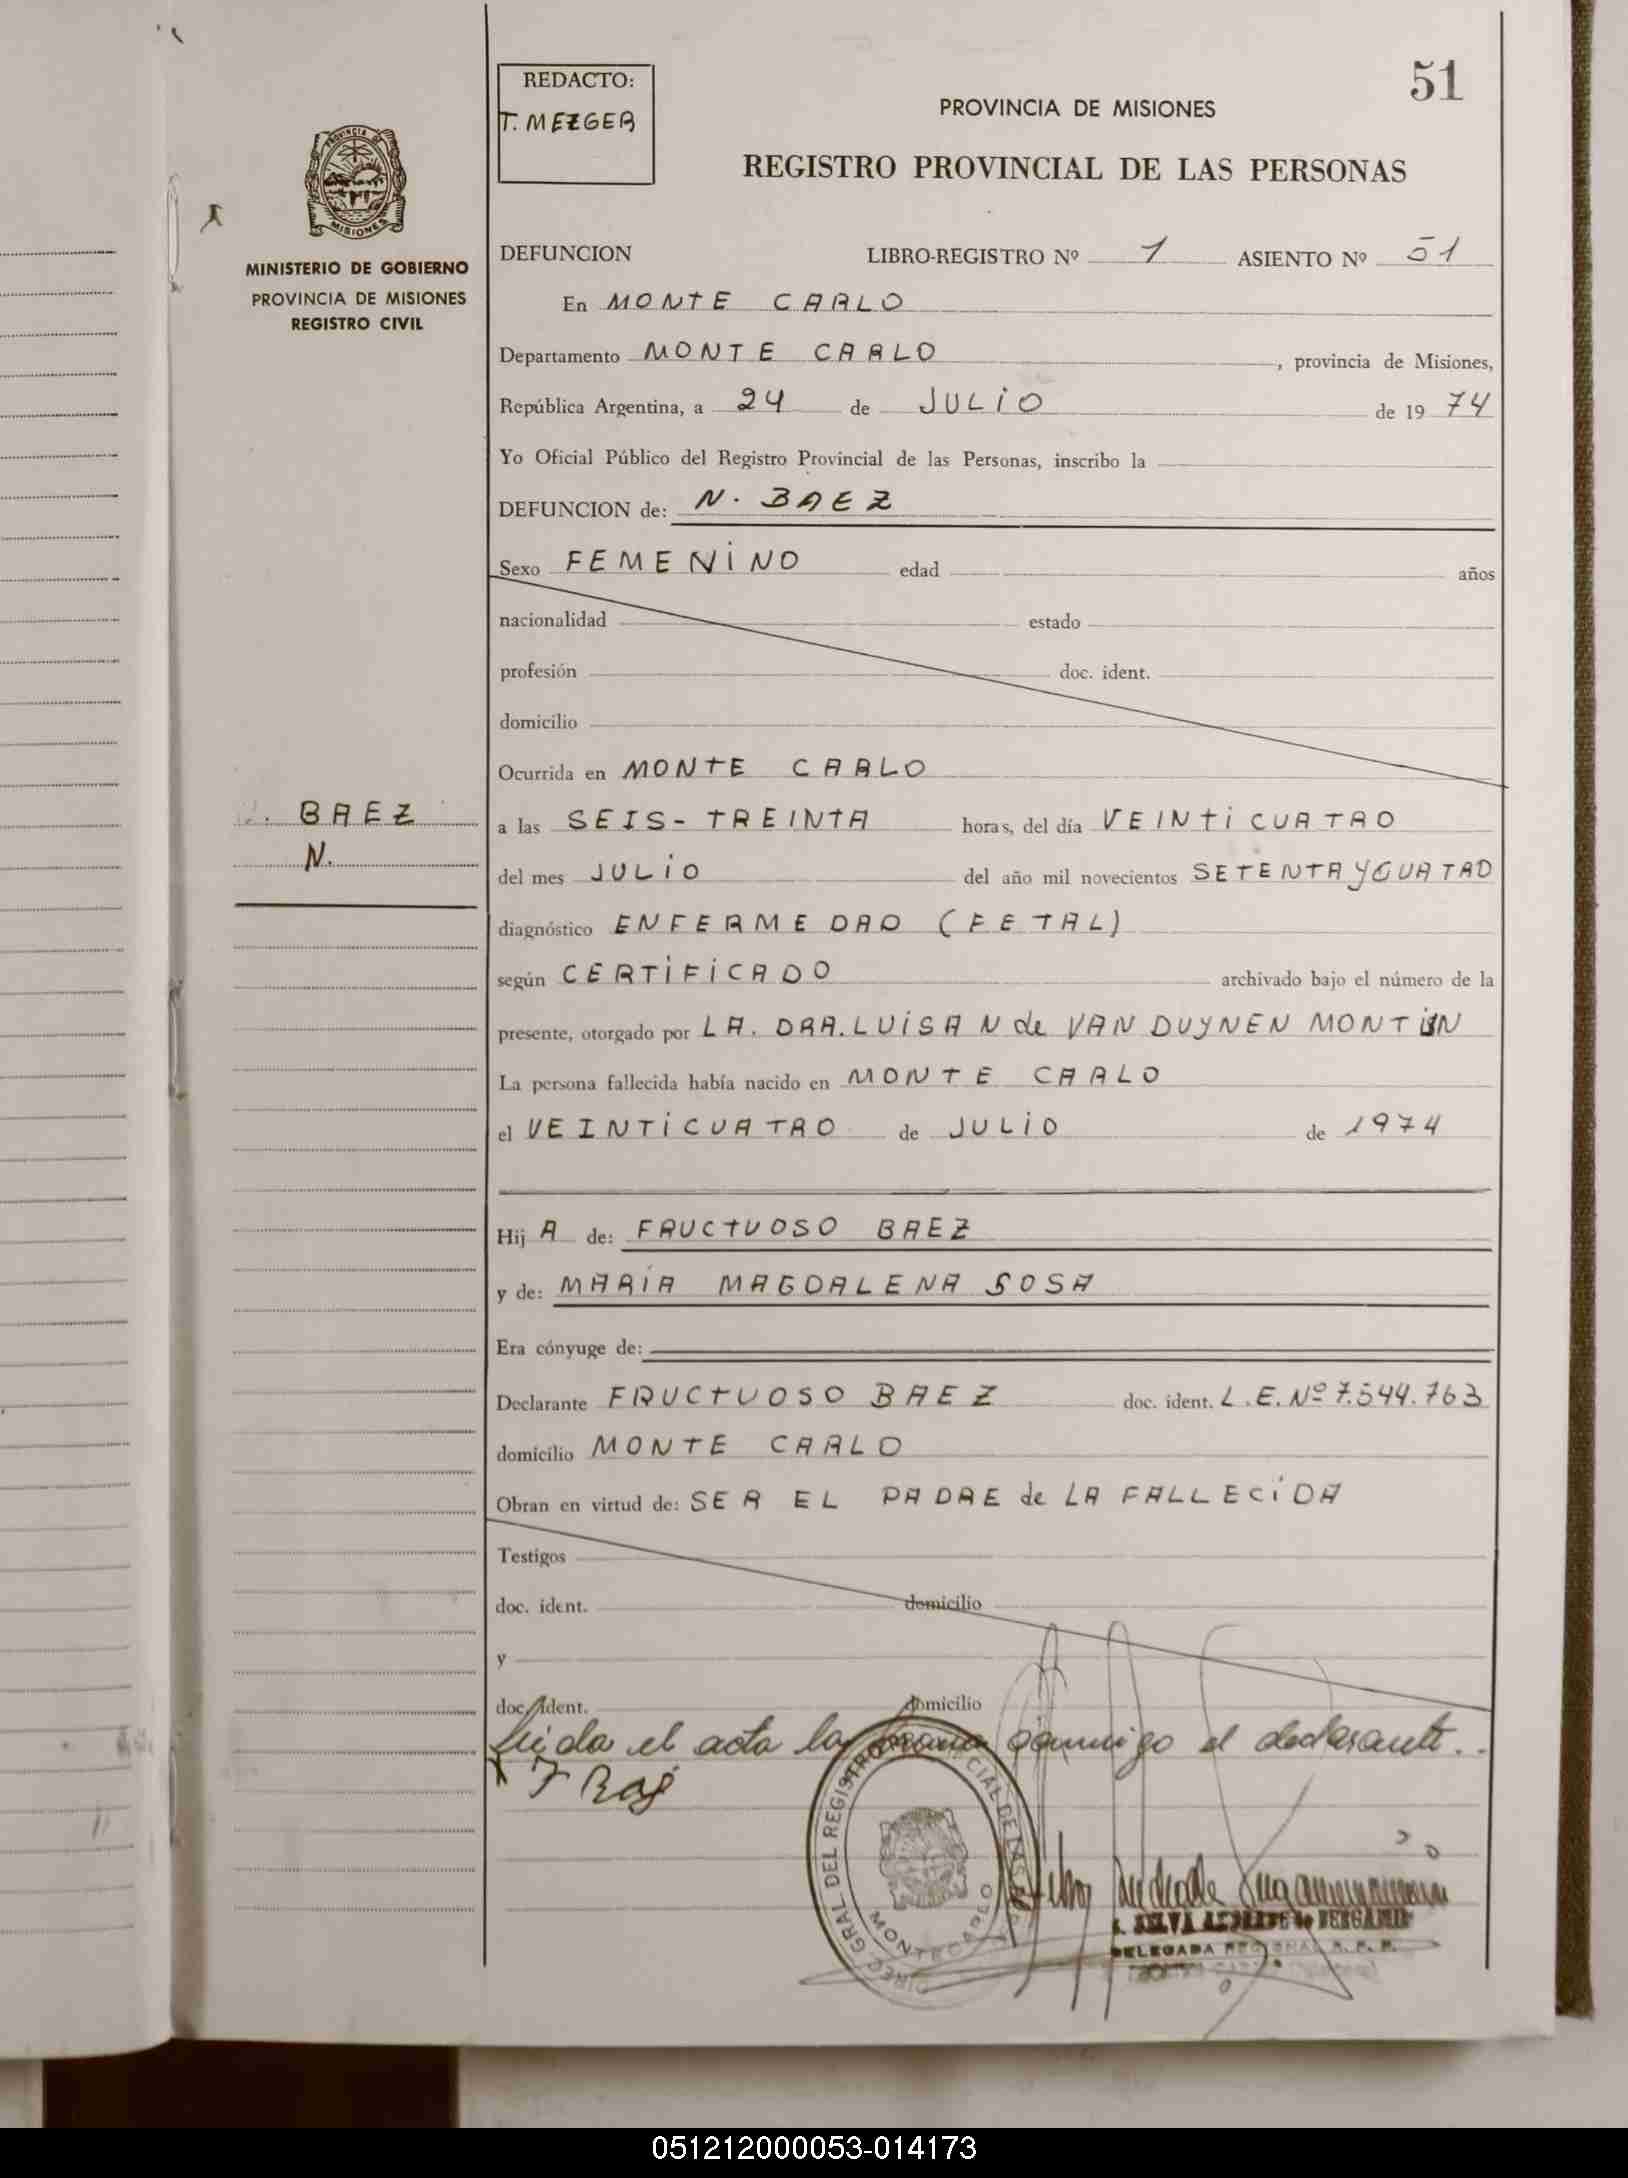 51
REDACTO:
T. MEZGER
PROVINCIA DE MISIONES
REGISTRO PROVINCIAL DE LAS PERSONAS
PROVINCIA DE
MISIONES
MINISTERIO DE GOBIERNO
PROVINCIA DE MISIONES
REGISTRO CIVIL
DEFUNCION LIBRO-REGISTRO Nº 1 ASIENTO Nº 51
En MONTE CARLO
Departamento MONTE CARLO, provincia de Misiones,
República Argentina, a 24 de JULIO de 1974
Yo Oficial Público del Registro Provincial de las Personas, inscribo la
DEFUNCION de: N. BAEZ
Sexo FEMENINO edad años
nacionalidad estado
profesión doc. ident.
domicilio
Ocurrida en MONTE CARLO
BAEZ
N.
a las SEIS-TREINTA horas, del día VEINTICUATRO
del mes JULIO del año mil novecientos SETENTA Y CUATRO
diagnóstico ENFERMEDAD (FETAL)
según CERTIFICADO archivado bajo el número de la
presente, otorgado por LA. DRA. LUISA N de VAN DUYNEN
La persona fallecida había nacido en MONTE CARLO
el VEINTICUATRO de JULIO de 1974
Hij A de: FRUCTUOSO BAEZ
y de: MARIA MAGDALENA SOSA
Era cónyuge de:
Declarante FRUCTUOSO BAEZ doc. ident. L.E. Nº 7.544.763
domicilio MONTE CARLO
Obran en virtud de: SER EL PADRE de LA FALLECIDA
Testigos
doc. ident. domicilio
y
doc. ident. domicilio
Leida el acta la firma conmigo el declarante..
DIREC. GRAL DEL REGISTRO PROVINCIAL DE LAS
MONTECARLO
DELEGADA REGIONAL R. P. P.
051212000053-014173